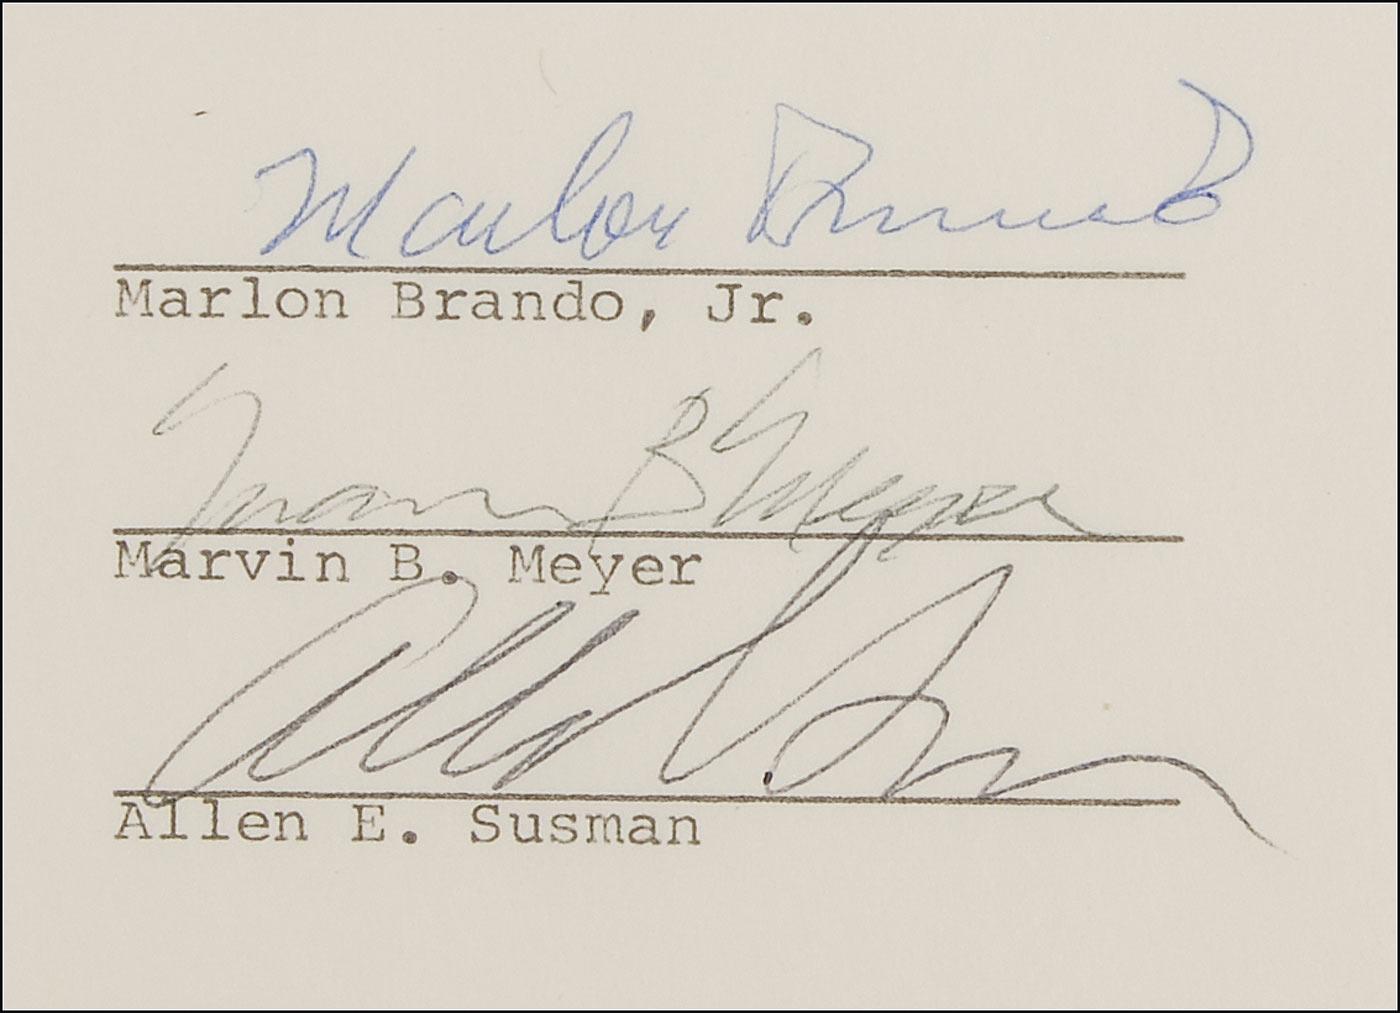 Marlon Brando
Marlon Brando, Jr.
Marvin B Meyer
Marvin B. Meyer
Allen E. Susman
Allen E. Susman